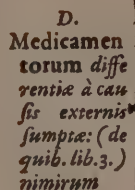 D.
Medicamen
torum diffe
rentiæ à cau
ſis externis
ſumptæ: (de
quib. lib. 3.)
nimirum